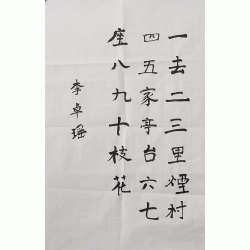 一去二三里煙村
四五家亭台六七
座八九十枝花
李卓瑶